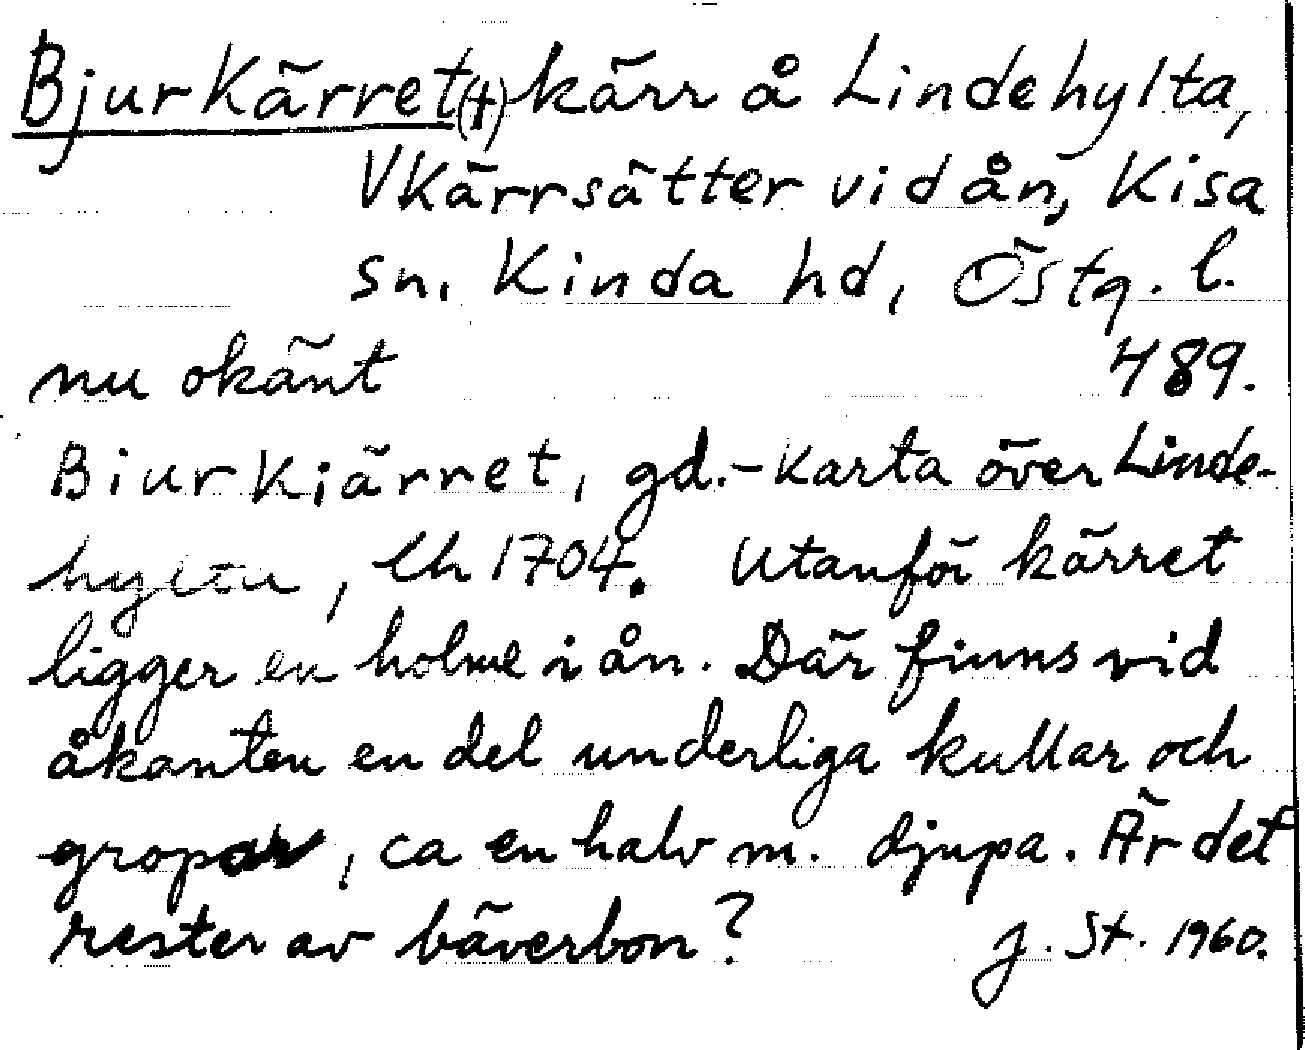 Bjurkärret(†) kärr å Lindehylta,
V Kärrsätter vid ån, Kisa
sn. Kinda hd, Östg. l.
nu okänt 489.
Biurkiärret, gd.-karta över Linde-
hylta, lh 1704. Utanför kärret
ligger en holme i ån. Där finns vid
åkanten en del underliga kullar och
gropar, ca en halv m. djupa. Är det
rester av bäverbon? J. St. 1960.